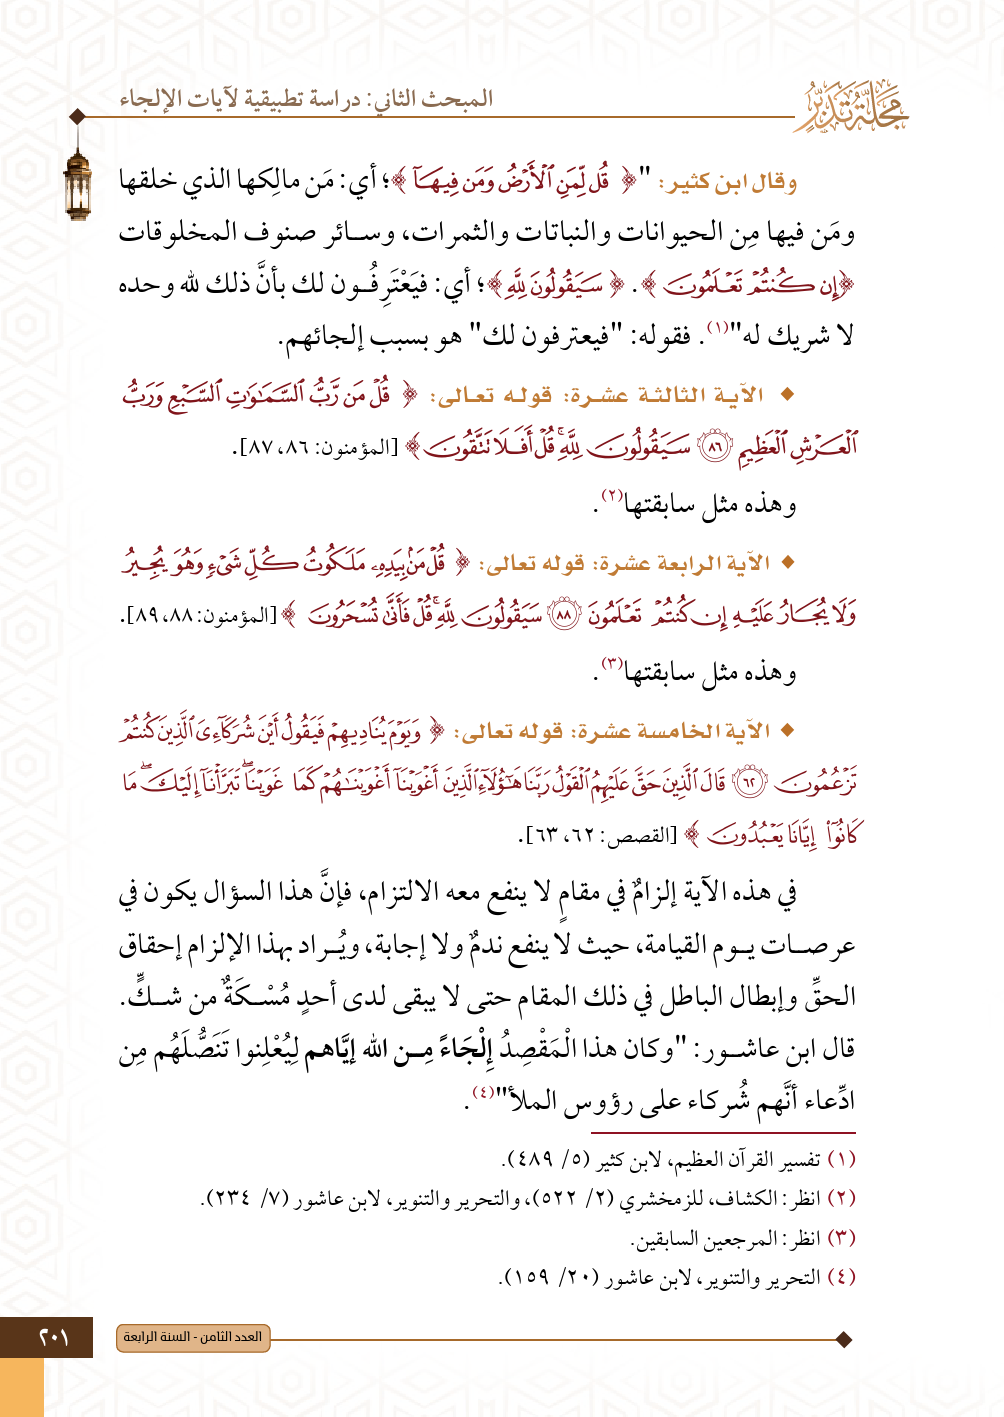 مجلة تدبر
المبحث الثاني: دراسة تطبيقية لآيات الإلجاء
وقال ابن كثير: "﴿ قُل لِّمَنِ ٱلْأَرْضُ وَمَن فِيهَآ ﴾؛ أي: مَن مالِكها الذي خلقها
ومَن فيها مِن الحيوانات والنباتات والثمرات، وسائر صنوف المخلوقات
﴿إِن كُنتُمْ تَعْلَمُونَ ﴾. ﴿ سَيَقُولُونَ لِلَّهِ﴾؛ أي: فيَعْتَرِفُون لك بأنَّ ذلك لله وحده
لا شريك له"(١). فقوله: "فيعترفون لك" هو بسبب إلجائهم.
◆ الآية الثالثة عشرة: قوله تعالى: ﴿ قُلْ مَن رَّبُّ ٱلسَّمَـٰوَٰتِ ٱلسَّبْعِ وَرَبُّ
ٱلْعَرْشِ ٱلْعَظِيمِ ٨٦ سَيَقُولُونَ لِلَّهِ ۚ قُلْ أَفَلَا تَتَّقُونَ ﴾ [المؤمنون: ٨٦، ٨٧].
وهذه مثل سابقتها(٢).
◆ الآية الرابعة عشرة: قوله تعالى: ﴿ قُلْ مَنۢ بِيَدِهِۦ مَلَكُوتُ كُلِّ شَىْءٍ وَهُوَ يُجِيرُ
وَلَا يُجَارُ عَلَيْهِ إِن كُنتُمْ تَعْلَمُونَ ٨٨ سَيَقُولُونَ لِلَّهِ ۚ قُلْ فَأَنَّىٰ تُسْحَرُونَ ﴾ [المؤمنون: ٨٨، ٨٩].
وهذه مثل سابقتها(٣).
◆ الآية الخامسة عشرة: قوله تعالى: ﴿ وَيَوْمَ يُنَادِيهِمْ فَيَقُولُ أَيْنَ شُرَكَآءِىَ ٱلَّذِينَ كُنتُمْ
تَزْعُمُونَ ٦٢ قَالَ ٱلَّذِينَ حَقَّ عَلَيْهِمُ ٱلْقَوْلُ رَبَّنَا هَـٰٓؤُلَآءِ ٱلَّذِينَ أَغْوَيْنَآ أَغْوَيْنَـٰهُمْ كَمَا غَوَيْنَا ۖ تَبَرَّأْنَآ إِلَيْكَ ۖ مَا
كَانُوٓا۟ إِيَّانَا يَعْبُدُونَ ﴾ [القصص: ٦٢، ٦٣].
في هذه الآية إلزامٌ في مقامٍ لا ينفع معه الالتزام، فإنَّ هذا السؤال يكون في
عرصات يوم القيامة، حيث لا ينفع ندمٌ ولا إجابة، ويُراد بهذا الإلزام إحقاق
الحقِّ وإبطال الباطل في ذلك المقام حتى لا يبقى لدى أحدٍ مُسْكَةٌ من شكٍّ.
قال ابن عاشور: "وكان هذا الْمَقْصِدُ إِلْجَاءً مِن الله إيَّاهم لِيُعْلِنوا تَنَصُّلَهُم مِن
ادِّعاء أنَّهم شُركاء على رؤوس الملأ"(٤).
(١) تفسير القرآن العظيم، لابن كثير (٥/ ٤٨٩).
(٢) انظر: الكشاف، للزمخشري (٢/ ٥٢٢)، والتحرير والتنوير، لابن عاشور (٧/ ٢٣٤).
(٣) انظر: المرجعين السابقين.
(٤) التحرير والتنوير، لابن عاشور (٢٠/ ١٥٩).
العدد الثامن - السنة الرابعة
٢٠١